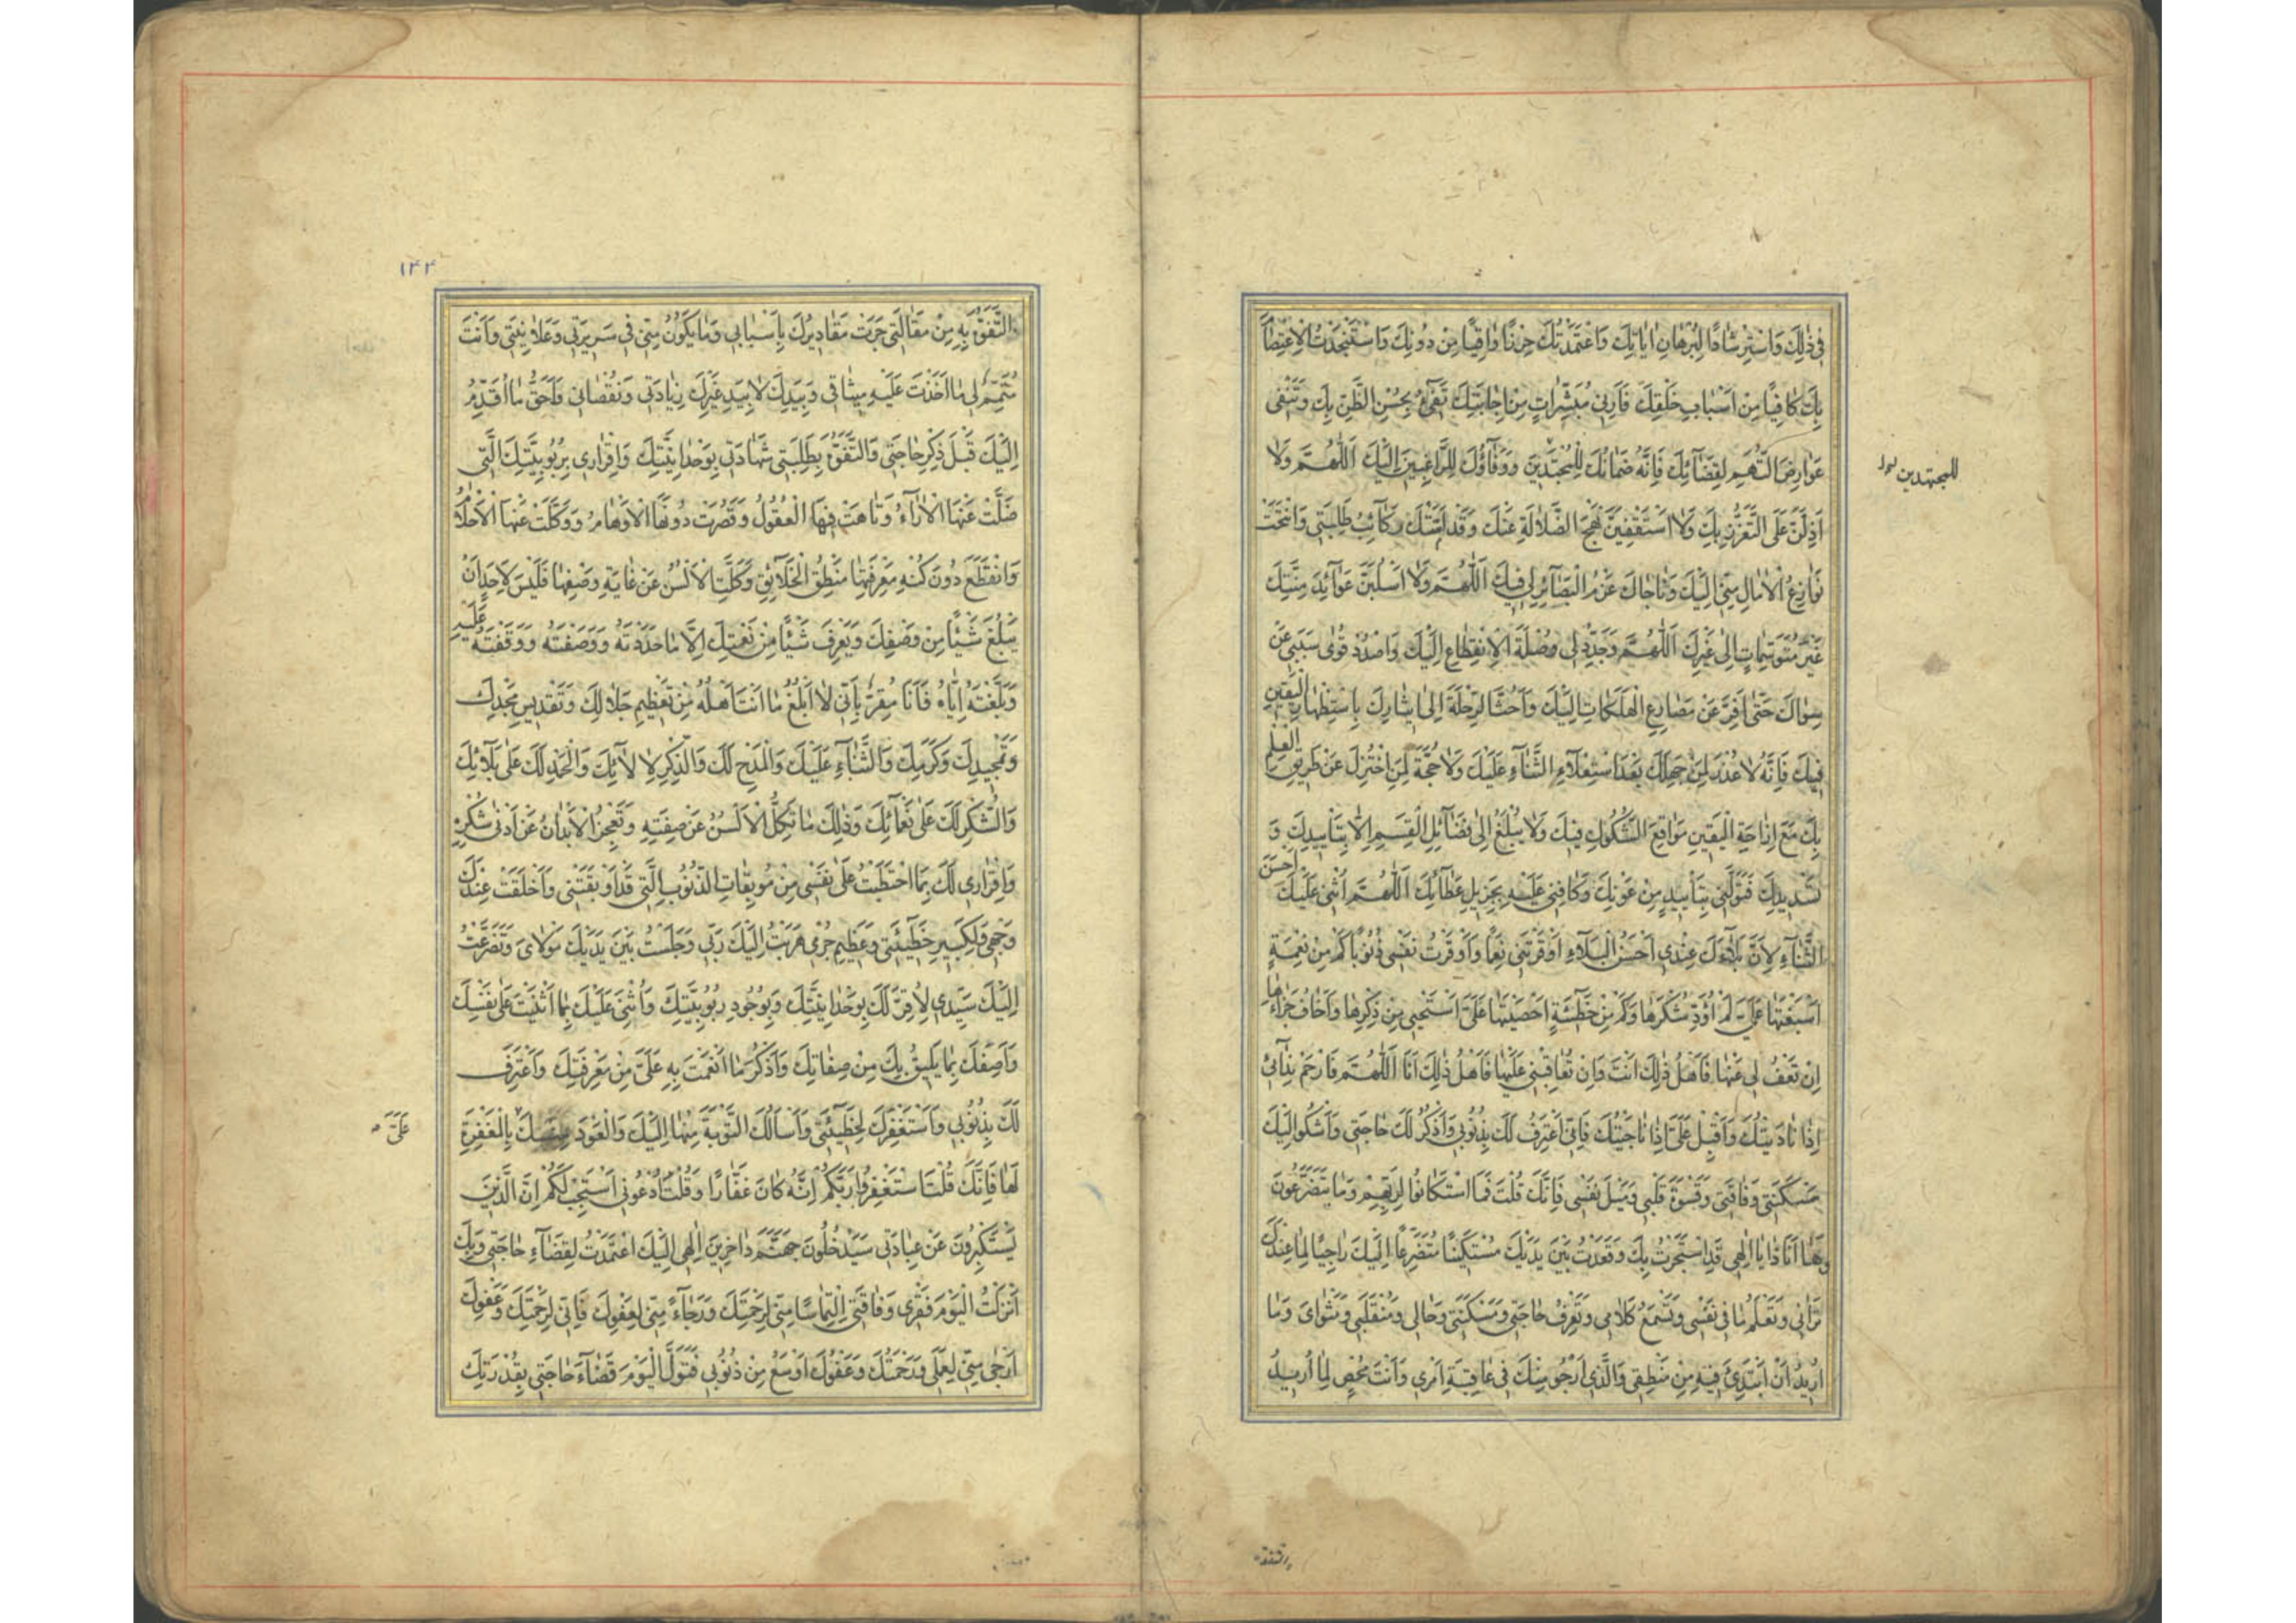 فِي ذٰلِكَ وَاسْتِرْشَادًا لِبُرْهَانِ اٰيَاتِكَ وَاعْتَمَدْتُكَ حِرْزًا وَاقِيًا مِنْ دُونِكَ وَاسْتَنْجَدْتُ الْاِعْتِصَامَ
بِكَ كَافِيًا مِنْ اَسْبَابِ خَلْقِكَ فَاَرِنِي مُبَشِّرَاتٍ مِنْ اِجَابَتِكَ تَفِيءُ بِحُسْنِ الظَّنِّ بِكَ وَتَنْفِي
عَوَارِضَ التُّهَمِ لِقَضَائِكَ فَاِنَّهُ ضَمَانُكَ لِلْمُجْتَدِينَ وَوَفَاؤُكَ لِلرَّاغِبِينَ اِلَيْكَ اَللّٰهُمَّ وَلَا
للمجتهدين
اَذِلَّنَّ عَلَى التَّعَزُّزِ بِكَ وَلَا اَسْتَقْفِيَنَّ نَهْجَ الضَّلَالَةِ عَنْكَ وَقَدْ اَمَّتْكَ رَكَائِبُ طَلِبَتِي وَانْتُخَتْ
نَوَازِعُ الْاٰمَالِ مِنِّي اِلَيْكَ وَنَاجَاكَ عَزْمُ الْبَصَائِرِ لِي فِيكَ اَللّٰهُمَّ وَلَا اُسْلَبَنَّ عَوَائِدَ مِنَنِكَ
غَيْرَ مُتَوَسِّمَاتٍ اِلٰى غَيْرِكَ اَللّٰهُمَّ وَجَدِّدْ لِي وُصْلَةَ الْاِنْقِطَاعِ اِلَيْكَ وَاصْدُدْ قُوٰى سَبَبِي عَنْ
سِوَاكَ حَتّٰى اَفِرَّ عَنْ مَصَارِعِ الْهَلَكَاتِ اِلَيْكَ وَاَحُثَّ الرِّحْلَةَ اِلٰى اِيثَارِكَ بِاسْتِظْهَارِ الْيَقِينِ
فِيكَ فَاِنَّهُ لَا عُذْرَ لِمَنْ جَهِلَكَ بَعْدَ اسْتِعْلَاءِ الثَّنَاءِ عَلَيْكَ وَلَا حُجَّةَ لِمَنِ اخْتُزِلَ عَنْ طَرِيقِ الْعِلْمِ
بِكَ مَعَ اِزَاحَةِ الْيَقِينِ مَوَاقِعَ الشُّكُوكِ فِيكَ وَلَا يُبْلَغُ اِلٰى فَضَائِلِ الْقِسَمِ اِلَّا بِتَأْيِيدِكَ وَ
تَسْدِيدِكَ فَتَوَلَّنِي بِتَأْيِيدٍ مِنْ عَوْنِكَ وَكَافِنِي عَلَيْهِ بِجَزِيلِ عَطَائِكَ اَللّٰهُمَّ اُثْنِي عَلَيْكَ اَحْسَنَ
الثَّنَاءِ لِاَنَّ بَلَاءَكَ عِنْدِي اَحْسَنُ الْبَلَاءِ اَوْقَرْتَنِي نِعَمًا وَاَوْقَرْتُ نَفْسِي ذُنُوبًا كَمْ مِنْ نِعْمَةٍ
اَسْبَغْتَهَا عَلَيَّ لَمْ اُؤَدِّ شُكْرَهَا وَكَمْ مِنْ خَطِيئَةٍ اَحْصَيْتَهَا عَلَيَّ اَسْتَحْيِي مِنْ ذِكْرِهَا وَاَخَافُ جَزَاءَهَا
اِنْ تَعْفُ لِي عَنْهَا فَاَهْلُ ذٰلِكَ اَنْتَ وَاِنْ تُعَاقِبْنِي عَلَيْهَا فَاَهْلُ ذٰلِكَ اَنَا اَللّٰهُمَّ فَارْحَمْ نِدَائِي
اِذَا نَادَيْتُكَ وَاَقْبِلْ عَلَيَّ اِذَا نَاجَيْتُكَ فَاِنِّي اَعْتَرِفُ لَكَ بِذُنُوبِي وَاَذْكُرُ لَكَ حَاجَتِي وَاَشْكُو اِلَيْكَ
مَسْكَنَتِي وَفَاقَتِي وَقَسْوَةَ قَلْبِي وَمَيْلَ نَفْسِي فَاِنَّكَ قُلْتَ فَمَا اسْتَكَانُوا لِرَبِّهِمْ وَمَا يَتَضَرَّعُونَ
وَهَا اَنَا ذَا يَا اِلٰهِي قَدِ اسْتَجَرْتُ بِكَ وَقَعَدْتُ بَيْنَ يَدَيْكَ مُسْتَكِينًا مُتَضَرِّعًا اِلَيْكَ رَاجِيًا لِمَا عِنْدَكَ
تَرَانِي وَتَعْلَمُ مَا فِي نَفْسِي وَتَسْمَعُ كَلَامِي وَتَعْرِفُ حَاجَتِي وَمَسْكَنَتِي وَحَالِي وَمُنْقَلَبِي وَمَثْوَايَ وَمَا
اُرِيدُ اَنْ اَبْتَدِئَ فِيهِ مِنْ مَنْطِقِي وَالَّذِي اَرْجُو مِنْكَ فِي عَاقِبَةِ اَمْرِي وَاَنْتَ مُحْصٍ لِمَا اُرِيدُ
التفوه
١٤٤
التَّفَوُّهَ بِهِ مِنْ مَقَالَتِي جَرَتْ مَقَادِيرُكَ بِاَسْبَابِي وَمَا يَكُونُ مِنِّي فِي سَرِيرَتِي وَعَلَانِيَتِي وَاَنْتَ
مُتَمِّمٌ لِي مَا اَخَذْتَ عَلَيْهِ مِيثَاقِي وَبِيَدِكَ لَا بِيَدِ غَيْرِكَ زِيَادَتِي وَنُقْصَانِي فَاَحَقُّ مَا اُقَدِّمُ
اِلَيْكَ قَبْلَ ذِكْرِ حَاجَتِي وَالتَّفَوُّهِ بِطَلِبَتِي شَهَادَتِي بِوَحْدَانِيَّتِكَ وَاِقْرَارِي بِرُبُوبِيَّتِكَ الَّتِي
ضَلَّتْ عَنْهَا الْاٰرَاءُ وَتَاهَتْ فِيهَا الْعُقُولُ وَقَصُرَتْ دُونَهَا الْاَوْهَامُ وَوَكَلَتْ عَنْهَا الْاَحْلَامُ
وَانْقَطَعَ دُونَ كُنْهِ مَعْرِفَتِهَا مَنْطِقُ الْخَلَائِقِ وَكَلَّتِ الْاَلْسُنُ عَنْ غَايَةِ وَصْفِهَا فَلَيْسَ لِاَحَدٍ اَنْ
يَبْلُغَ شَيْئًا مِنْ وَصْفِكَ وَيَعْرِفَ شَيْئًا مِنْ نَعْتِكَ اِلَّا مَا حَدَّدْتَهُ وَوَصَفْتَهُ وَوَقَفْتَهُ عَلَيْهِ
وَبَلَّغْتَهُ اِيَّاهُ فَاَنَا مُقِرٌّ بِاَنِّي لَا اَبْلُغُ مَا اَنْتَ اَهْلُهُ مِنْ تَعْظِيمِ جَلَالِكَ وَتَقْدِيسِ مَجْدِكَ
وَتَمْجِيدِكَ وَكَرَمِكَ وَالثَّنَاءِ عَلَيْكَ وَالْمَدْحِ لَكَ وَالذِّكْرِ لِاٰلَائِكَ وَالْحَمْدِ لَكَ عَلٰى بَلَائِكَ
وَالشُّكْرِ لَكَ عَلٰى نَعْمَائِكَ وَذٰلِكَ مَا تَكِلُّ الْاَلْسُنُ عَنْ صِفَتِهِ وَتَعْجِزُ الْاَبْدَانُ عَنْ اَدْنٰى شُكْرِهِ
وَاِقْرَارِي لَكَ بِمَا احْتَطَبْتُ عَلٰى نَفْسِي مِنْ مُوبِقَاتِ الذُّنُوبِ الَّتِي قَدْ اَوْبَقَتْنِي وَاَخْلَقَتْ عِنْدَكَ
وَجْهِي وَلِكَبِيرِ خَطِيئَتِي وَعَظِيمِ جُرْمِي هَرَبْتُ اِلَيْكَ رَبِّي وَجَلَسْتُ بَيْنَ يَدَيْكَ مَوْلَايَ وَتَضَرَّعْتُ
اِلَيْكَ سَيِّدِي لِاُقِرَّ لَكَ بِوَحْدَانِيَّتِكَ وَبِوُجُودِ رُبُوبِيَّتِكَ وَاُثْنِيَ عَلَيْكَ بِمَا اَثْنَيْتَ عَلٰى نَفْسِكَ
وَاَصِفَكَ بِمَا يَلِيقُ بِكَ مِنْ صِفَاتِكَ وَاَذْكُرَ مَا اَنْعَمْتَ بِهِ عَلَيَّ مِنْ مَعْرِفَتِكَ وَاَعْتَرِفَ
لَكَ بِذُنُوبِي وَاَسْتَغْفِرَكَ لِخَطِيئَتِي وَاَسْأَلُكَ التَّوْبَةَ مِنْهَا اِلَيْكَ وَالْعَوْدَ مِنْكَ بِالْمَغْفِرَةِ
عَلَيَّ
لَهَا فَاِنَّكَ قُلْتَ اسْتَغْفِرُوا رَبَّكُمْ اِنَّهُ كَانَ غَفَّارًا وَقُلْتَ اُدْعُونِي اَسْتَجِبْ لَكُمْ اِنَّ الَّذِينَ
يَسْتَكْبِرُونَ عَنْ عِبَادَتِي سَيَدْخُلُونَ جَهَنَّمَ دَاخِرِينَ اِلٰهِي اِلَيْكَ اعْتَمَدْتُ لِقَضَاءِ حَاجَتِي وَبِكَ
اَنْزَلْتُ الْيَوْمَ فَقْرِي وَفَاقَتِي اِلْتِمَاسًا مِنِّي لِرَحْمَتِكَ وَرَجَاءً مِنِّي لِعَفْوِكَ فَاِنِّي لِرَحْمَتِكَ وَعَفْوِكَ
اَرْجٰى مِنِّي لِعَمَلِي وَرَحْمَتُكَ وَعَفْوُكَ اَوْسَعُ مِنْ ذُنُوبِي فَتَوَلَّ الْيَوْمَ قَضَاءَ حَاجَتِي بِقُدْرَتِكَ